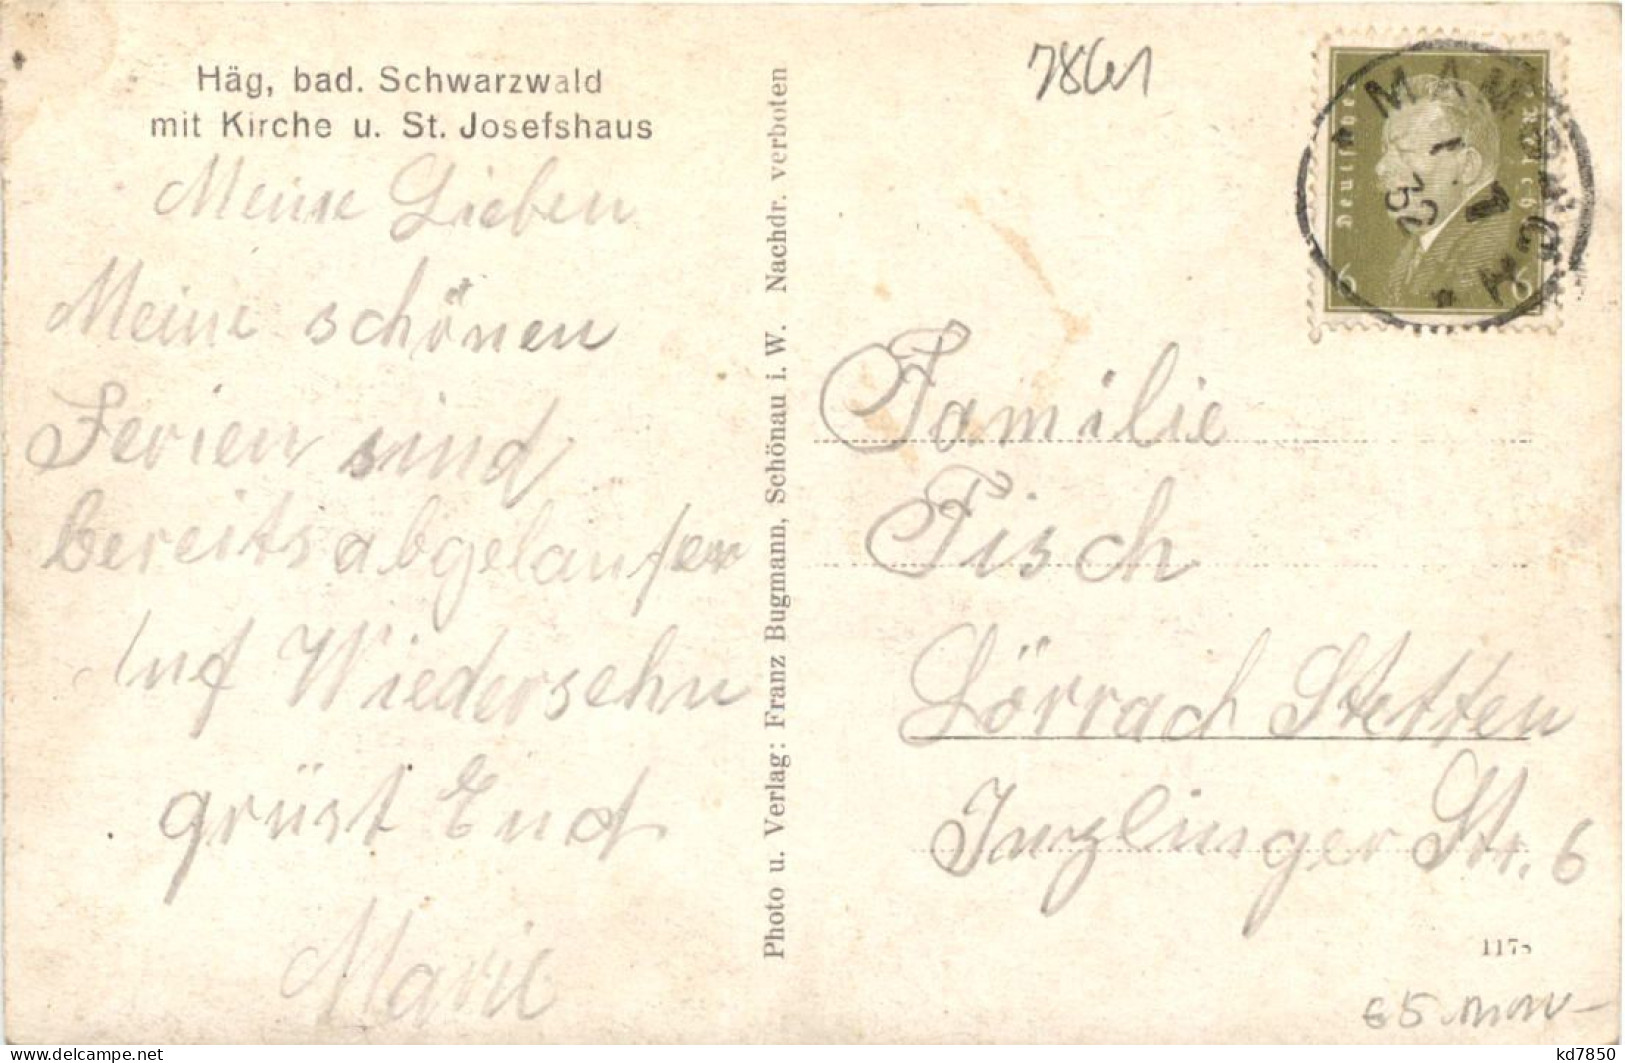 Häg, bad. Schwarzwald
mit Kirche u. St. Josefshaus
Meine Lieben
Meine schönen
Ferien sind
bereits abgelaufen
Auf Wiedersehn
grüst Eud
Marie
Photo u. Verlag: Franz Bugmann, Schönau i. W. Nachdr. verboten
7861
Deutsches Reich
6 6
MAMBACH
1
32
Familie
Fisch
Lörrach Stetten
Inzlinger Str. 6
1175
65
kd7850